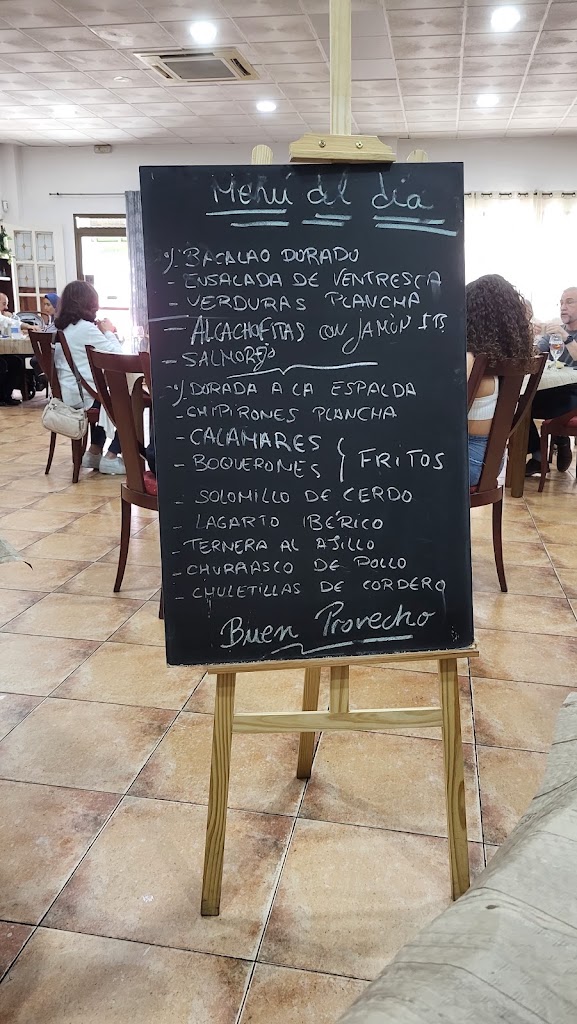 Menú del dia
%. BACALAO DORADO
- ENSALADA DE VENTRESCA
- VERDURAS PLANCHA
- ALCACHOFITAS CON JAMÓN
- SALMOREJO
%. DORADA A LA ESPALDA
- CHIPIRONES PLANCHA
- CALAMARES
- BOQUERONES } FRITOS
- SOLOMILLO DE CERDO
- LAGARTO IBÉRICO
- TERNERA AL AJILLO
- CHURRASCO DE POLLO
- CHULETILLAS DE CORDERO
Buen Provecho